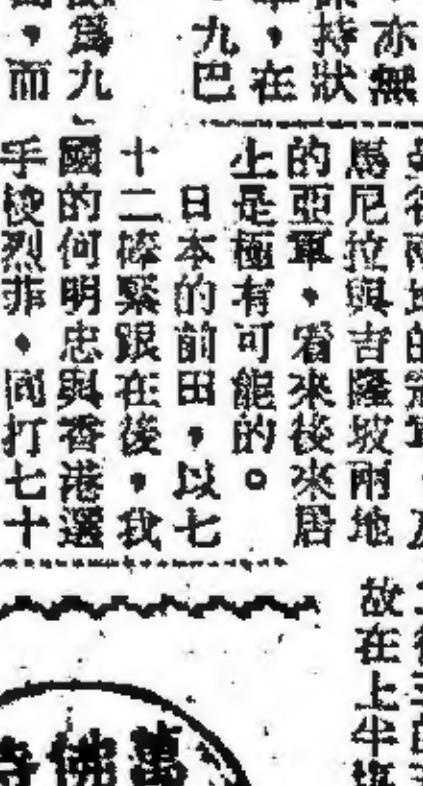 亦無
持狀
，在
九巴
爲九
，而
馬尼拉與吉隆坡兩地
的亞軍，看來後來居
上是極有可能的。
日本的前田，以七
十二桿緊跟在後，我
國的何明忠與香港選
手梭烈菲，同打七十
故在上半
萬佛